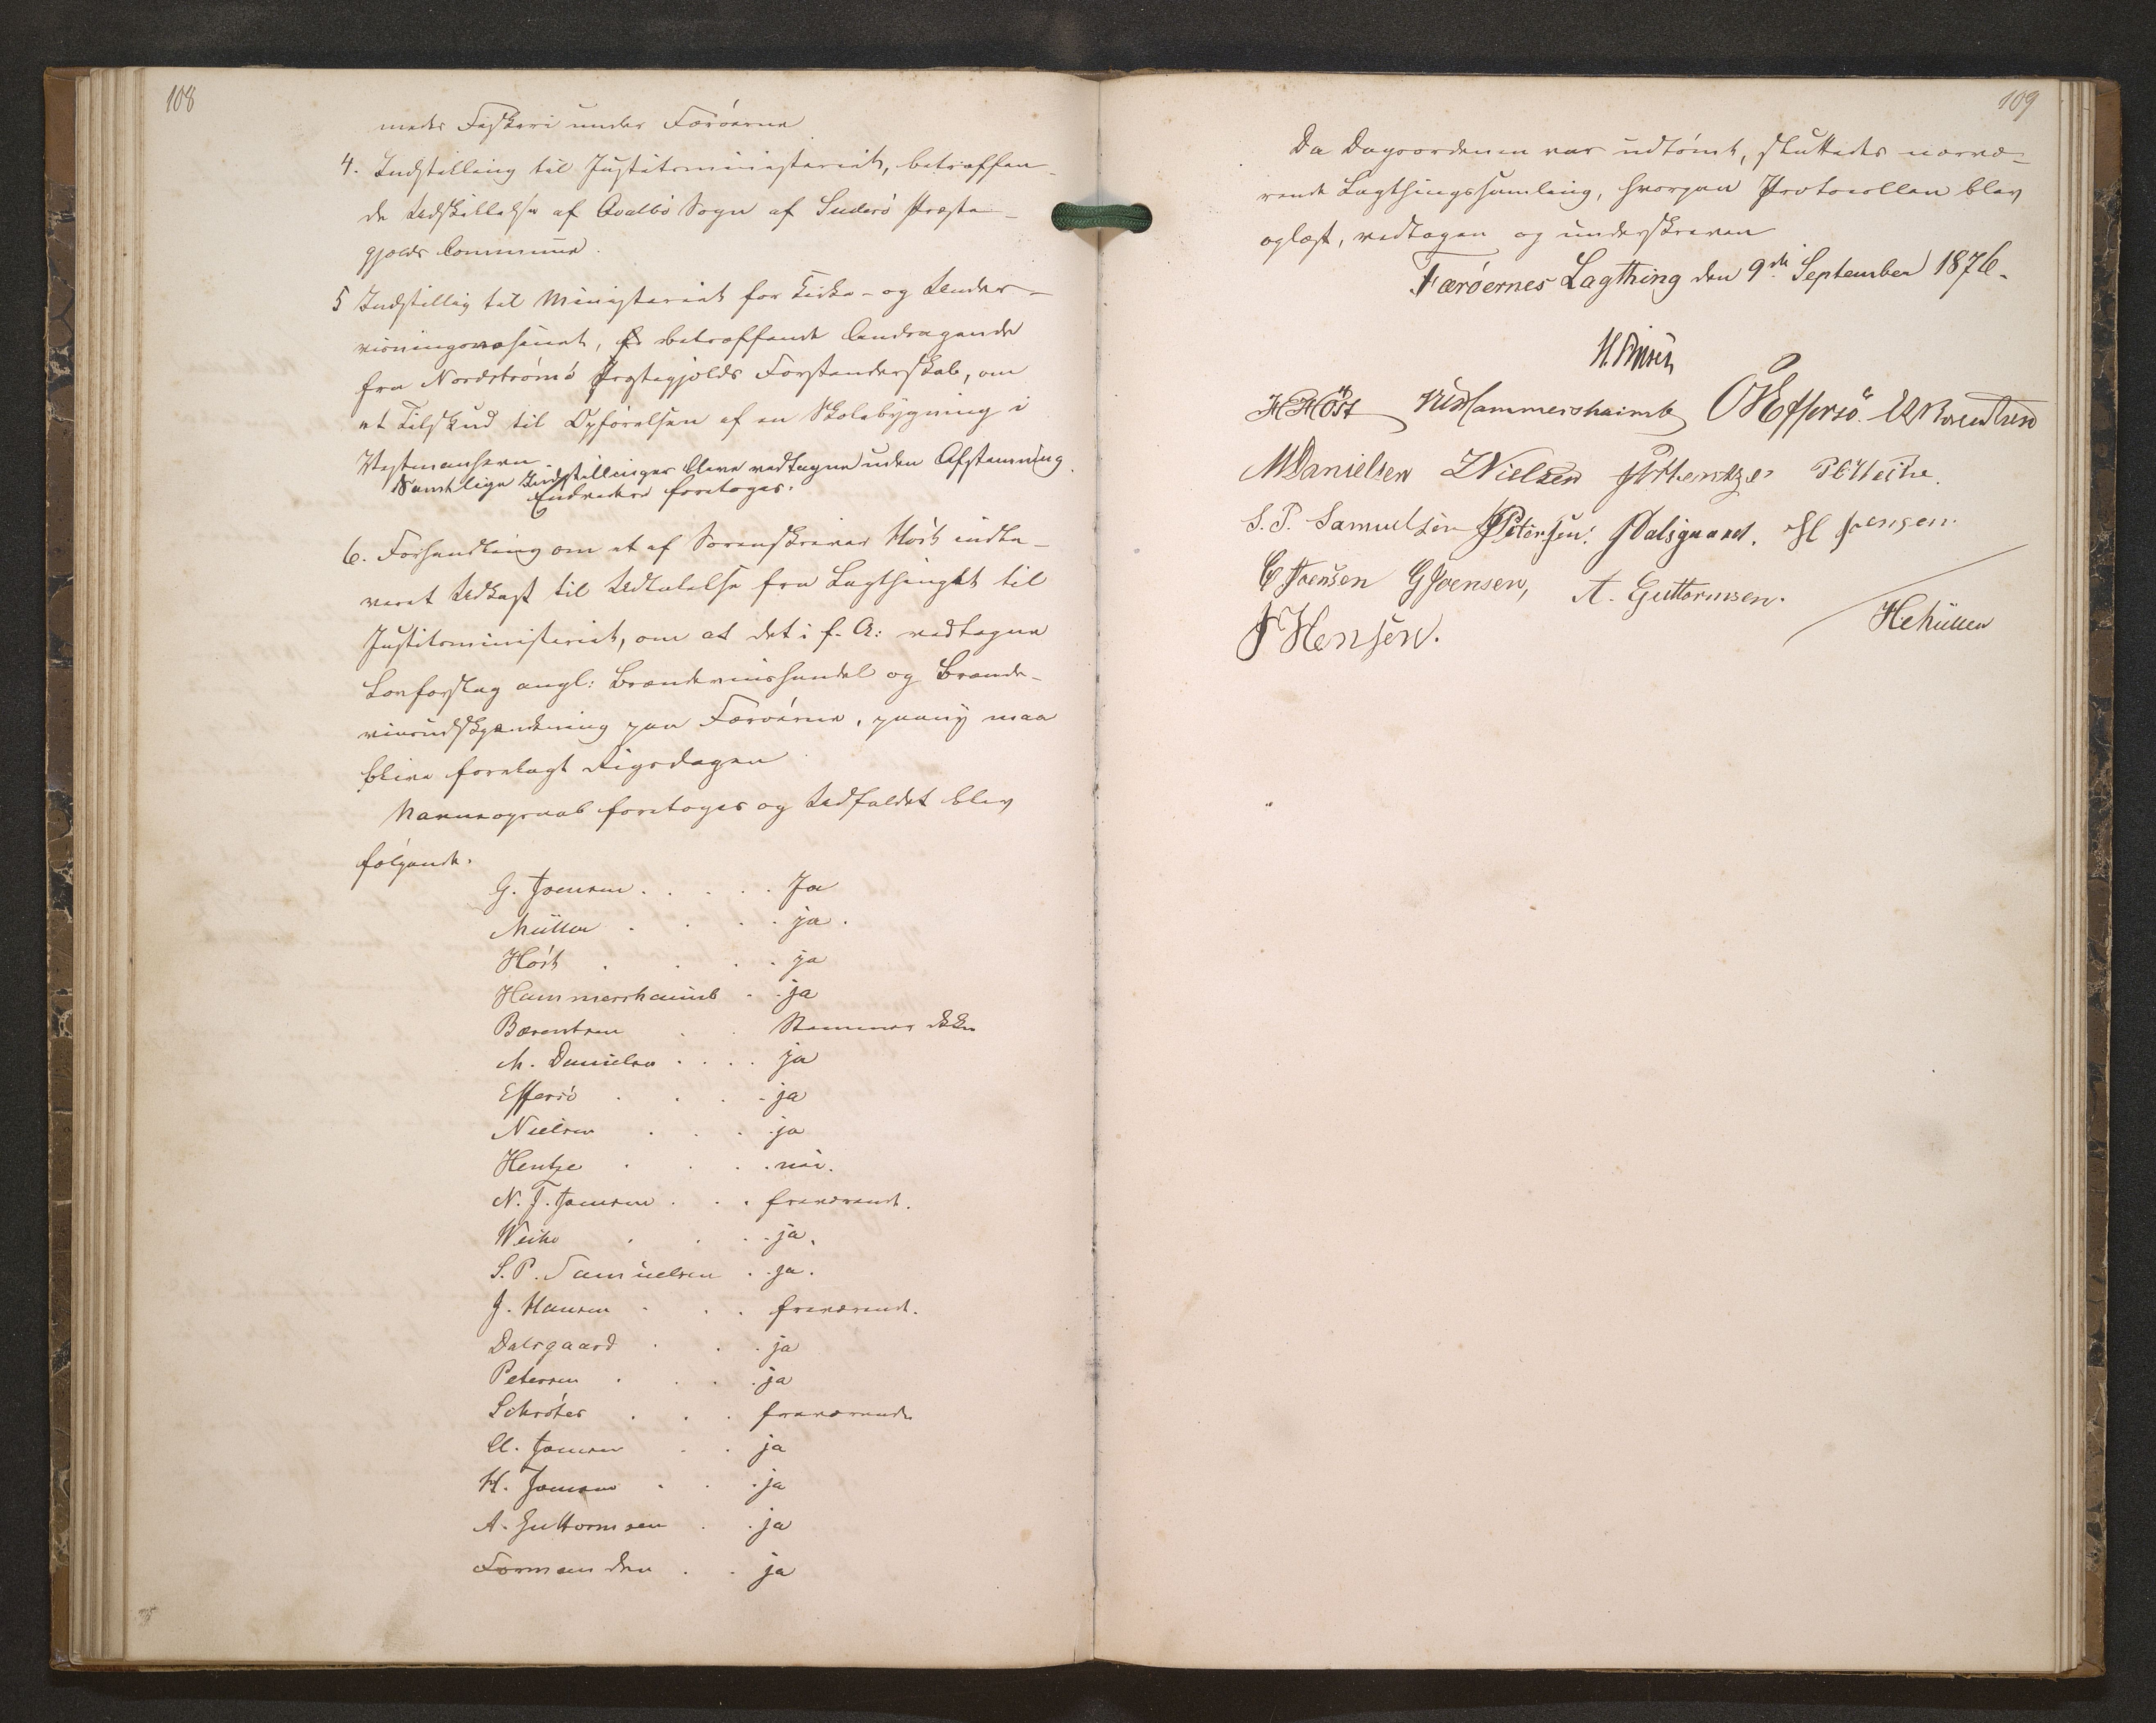 108
mede Fiskeri under Færöerne
4. Indstilling til Justitsministeriet, betræffen-
de Udskillelse af Qvalbö Sogn af Suderö Præste-
gjælds Commune.
5 Indstillig til Ministeriet for Kirke- og Under-
viisningsvæsenet, betræffende Andragende
fra Nordströmö Præstegjælds Forstanderskab, om
et Tilskud til Opförelsen af en Skolebygning i
Vestmanhavn
Samtlige Indstillinger bleve vedtagne uden Afstemning.
Endvidere foretoges.
6. Forhandling om et af Sorenskriver Höst indle-
veret Udkast til Udtalelse fra Lagthinget til
Justitsministeriet, om at det i f. A: vedtagne
Lovforslag angl: Brændeviinshandel og Brænde-
viinsudskjænkning paa Færöerne, paany maa
blive forelagt Rigsdagen
Navneopraab foretoges og Udfaldet blev
fölgende.
G. Joensen . . . . . Ja
Müller . . . . ja.
Höst . . . . ja
Hammershaimb . . ja
Bærentsen . . Stemmer ikke
M. Danielsen . . . . ja
Effersö . . . . ja
Nielsen . . . ja
Hentze . . . nei.
N. J. Joensen . . . fraværende.
Weihe . . . . ja.
S. P. Samuelsen . . ja.
J. Hansen . . . fraværende.
Dalsgaard . . . ja
Petersen . . . . ja
Schröter . . . fraværende
C. Joensen . . ja
H. Joensen . . . ja
A. Guttormsen . . ja
Formanden . . ja
109
Da Dagsordenen var udtömt, sluttedes nærvæ-
rende Lagthingssamling, hvorpaa Protocollen blev
oplæst, vedtagen og underskreven
Færöernes Lagthing den 9de September 1876.
H. Finsen
H Höst Hammershaimb Effersö. Bærentsen
M Danielsen Z Nielsen Hentze Weihe.
S. P. Samuelsen Petersen. J Dalsgaard. H Joensen.
C Joensen G Joensen, A. Guttormsen.
J Hensen.
H C Müller